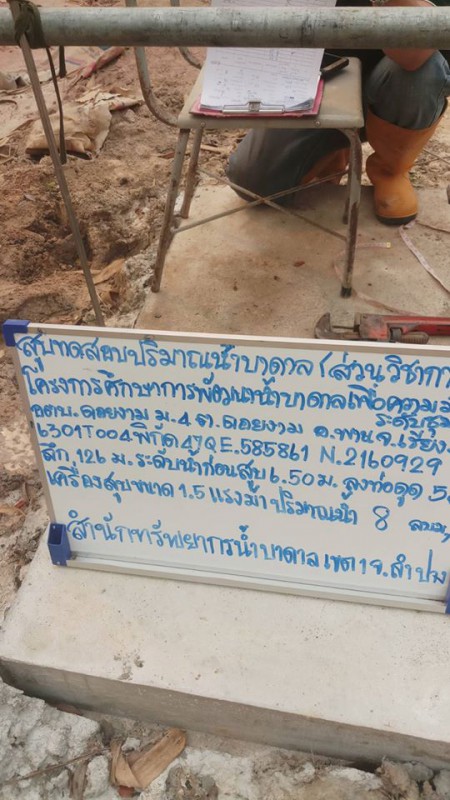 สูบทดสอบปริมาณน้ำบาดาล (ส่วนวิชากา
โครงการศึกษาการพัฒนาน้ำบาดาลเพื่อความ
ระดับชุม
อตบ.ดอยงาม ม.4 ต.ดอยงาม อ.พาน จ.เชียง
6301T004 พิกัด 47QE.585861 N.2160929
ลึก 126 ม. ระดับน้ำก่อนสูบ 6.50 ม. ลงท่อดูด 5
เครื่องสูบขนาด 1.5 แรงม้า ปริมาณน้ำ 8 ลบม.
สำนักทรัพยากรน้ำบาดาล เขต 1 จ.ลำปาง